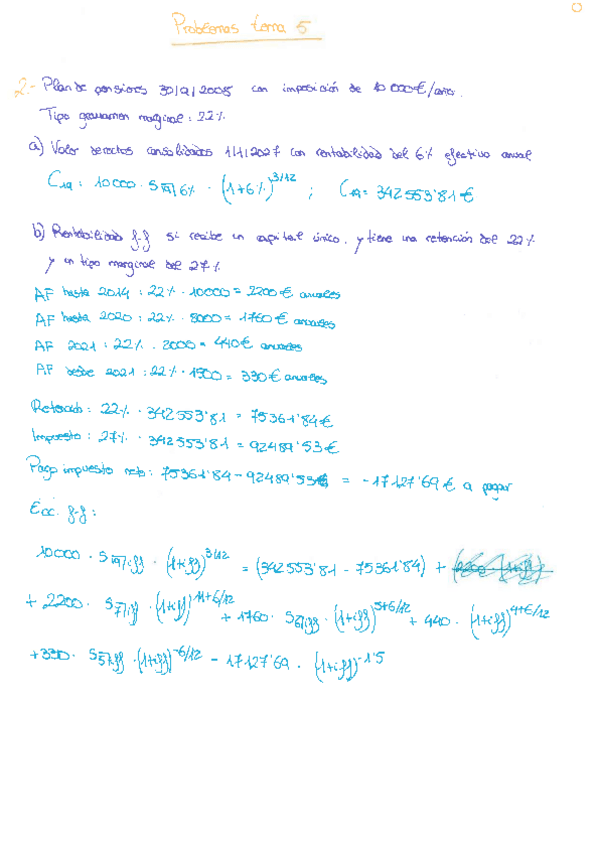 Problemas tema 5
2.- Plan de pensiones 30/9/2008 con imposición de 10 000€/año.
Tipo gravamen marginal: 22%
a) Valor derechos consolidados 1/1/2027 con rentabilidad del 6% efectivo anual
C19 = 10000 · S19̅|6% · (1+6%)^3/12 ; C19 = 342553'81€
b) Rentabilidad f-f si recibe un capital único, y tiene una retención del 22%
y un tipo marginal del 27%
AF hasta 2014 : 22% · 10000 = 2200€ anuales
AF hasta 2020 : 22% · 8000 = 1760€ anuales
AF 2021 : 22% · 2000 = 440€ anuales
AF desde 2021 : 22% · 1500 = 330€ anuales
Retenido : 22% · 342553'81 = 75361'84€
Impuesto : 27% · 342553'81 = 92489'53€
Pago impuesto neto : 75361'84 - 92489'53€ = -17127'69€ a pagar
Ecc. f-f :
10000 · S19̅|iff · (1+iff)^3/12 = (342553'81 - 75361'84) +
+ 2200 · S7̅|iff · (1+iff)^11+6/12 + 1760 · S6̅|iff · (1+iff)^5+6/12 + 440 · (1+iff)^4+6/12
+330 · S5̅|iff · (1+iff)^-6/12 - 17127'69 · (1+iff)^-1'5